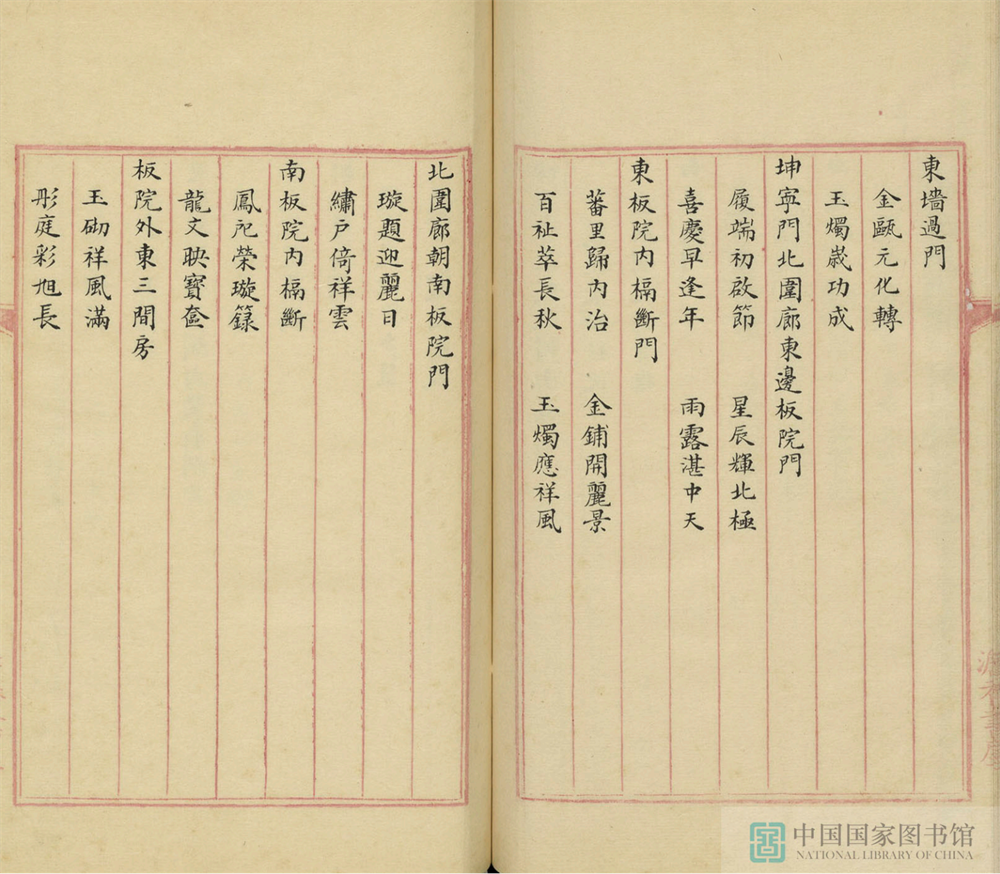 東墻過門
金甌元化轉
玉燭歲功成
坤寧門北圍廊東邊板院門
履端初啟節　星辰輝北極
喜慶早逢年　雨露湛中天
東板院內槅斷門
蕃里歸內治　金鋪開麗景
百祉萃長秋　玉燭應祥風
北圍廊朝南板院門
璇題迎麗日
繡戶倚祥雲
南板院內槅斷
鳳祀榮璇籙
龍文映寶奩
板院外東三間房
玉砌祥風滿
彤庭彩旭長
中国国家图书馆
NATIONAL LIBRARY OF CHINA